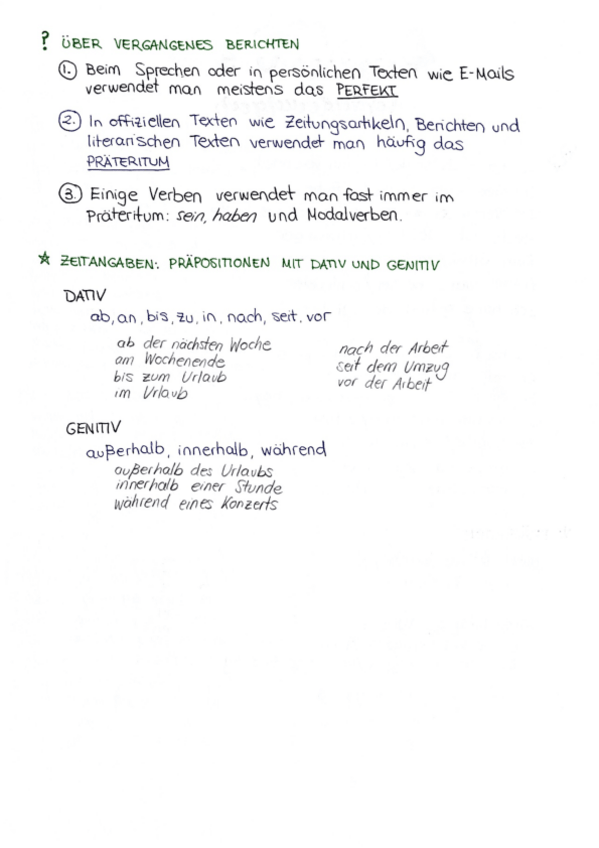 ? ÜBER VERGANGENES BERICHTEN
1. Beim Sprechen oder in persönlichen Texten wie E-Mails
verwendet man meistens das PERFEKT
2. In offiziellen Texten wie Zeitungsartikeln, Berichten und
literarischen Texten verwendet man häufig das
PRÄTERITUM
3. Einige Verben verwendet man fast immer im
Präteritum: sein, haben und Modalverben.
☆ ZEITANGABEN: PRÄPOSITIONEN MIT DATIV UND GENITIV
DATIV
ab, an, bis, zu, in, nach, seit, vor
ab der nächsten Woche
am Wochenende
bis zum Urlaub
im Urlaub
nach der Arbeit
seit dem Umzug
vor der Arbeit
GENITIV
außerhalb, innerhalb, während
außerhalb des Urlaubs
innerhalb einer Stunde
während eines Konzerts